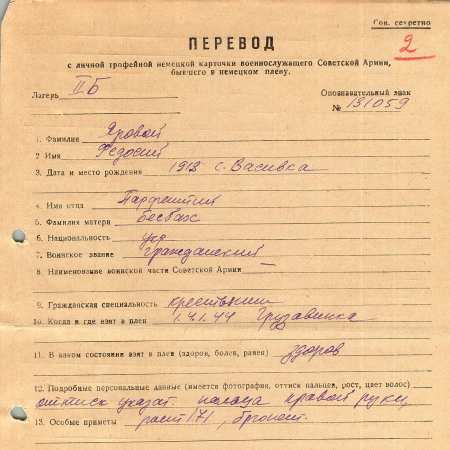 Сов. секретно
2
ПЕРЕВОД
с личной трофейной немецкой карточки военнослужащего Советской Армии,
бывшего в немецком плену.
Лагерь II Б
Опознавательный знак
№ 131059
1. Фамилия Яровой
2 Имя Федосий
3. Дата и место рождения 1913 с. Васивка
4. Имя отца
5. Фамилия матери
6. Национальность укр
7. Воинское звание гражданский
8. Наименование воинской части Советской Армии —
9. Гражданская специальность крестьянин
10. Когда и где взят в плен 1.4.1.44 Грузавинка
11. В каком состоянии взят в плен (здоров, болен, ранен) здоров
12. Подробные персональные данные (имеется фотография, оттиск пальцев, рост, цвет волос)
оттиск указат. пальца правой руки,
13. Особые приметы рост 171, брюнет.